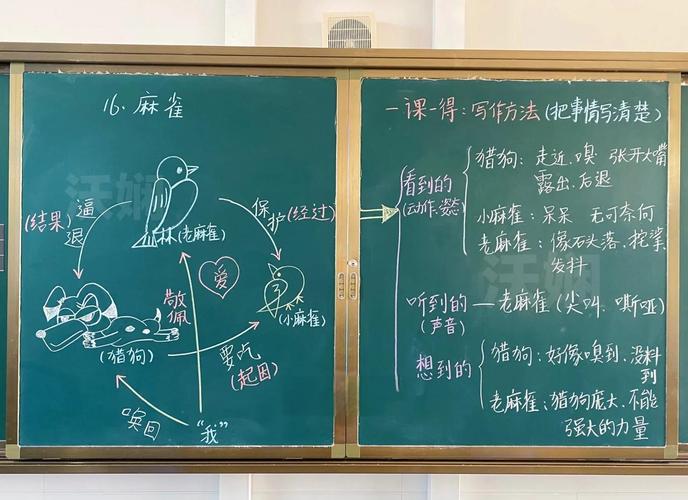 16. 麻雀
(结果)逼退
林(老麻雀)
保护(经过)
爱
敬佩
(小麻雀)
(猎狗)
要吃
(起因)
唤回
"我"
一课一得：写作方法(把事情写清楚)
看到的
(动作、姿态)
猎狗：走近、嗅 张开大嘴
露出、后退
小麻雀：呆呆 无可奈何
老麻雀：像石头落、挓挲
发抖
听到的——老麻雀(尖叫、嘶哑)
(声音)
想到的
猎狗：好像嗅到、没料
到
老麻雀：猎狗庞大、不能
强大的力量
活娴
活娴